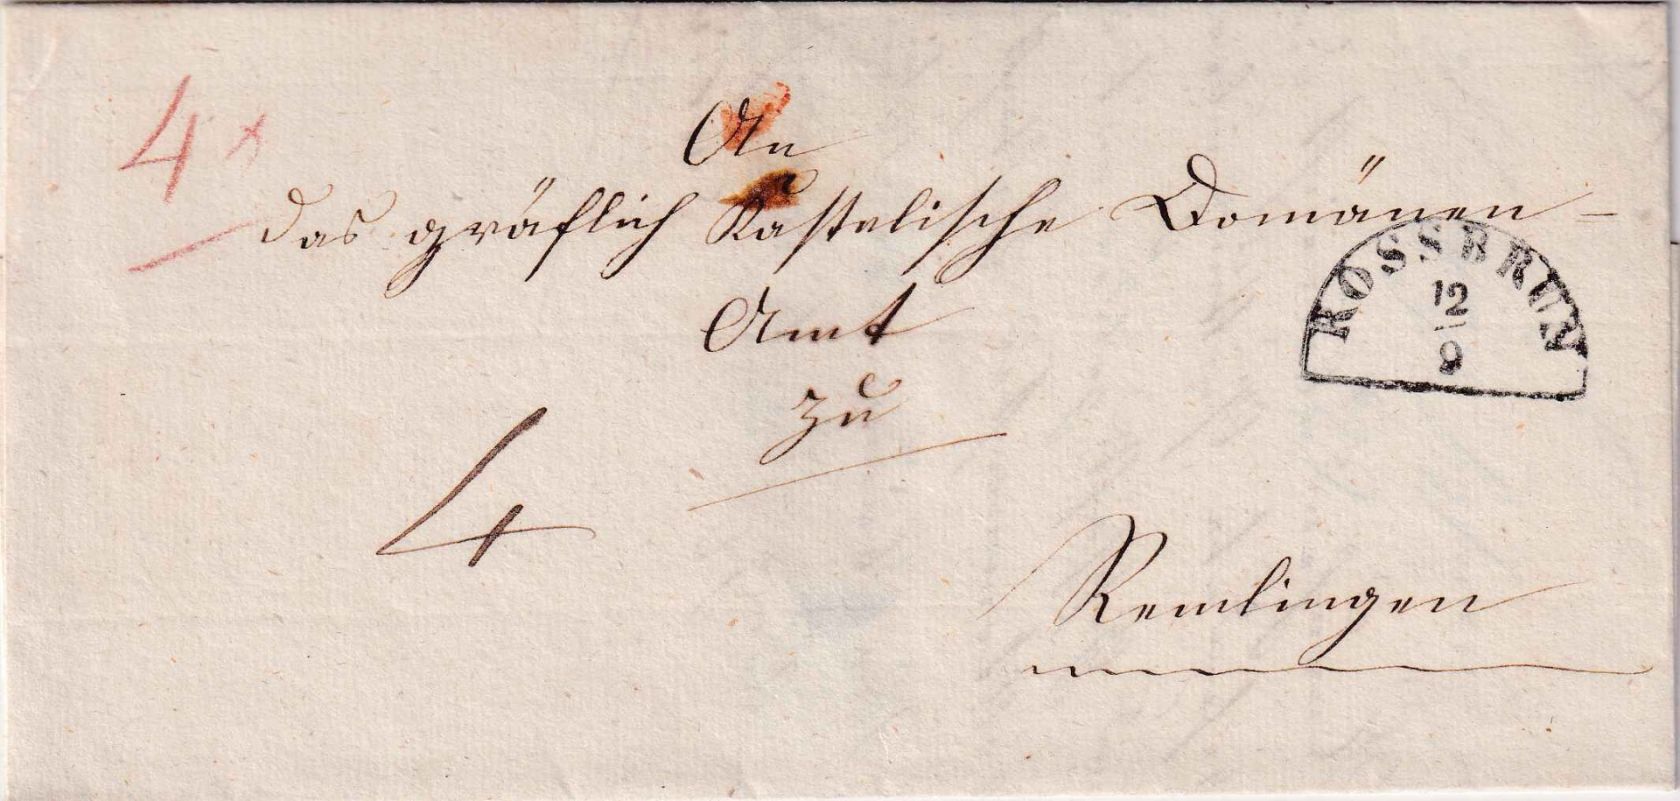 4 x
An
das gräflich Kastelische Domänen-
Amt
zu
ROSSBRUN
12
9
4
Remlingen